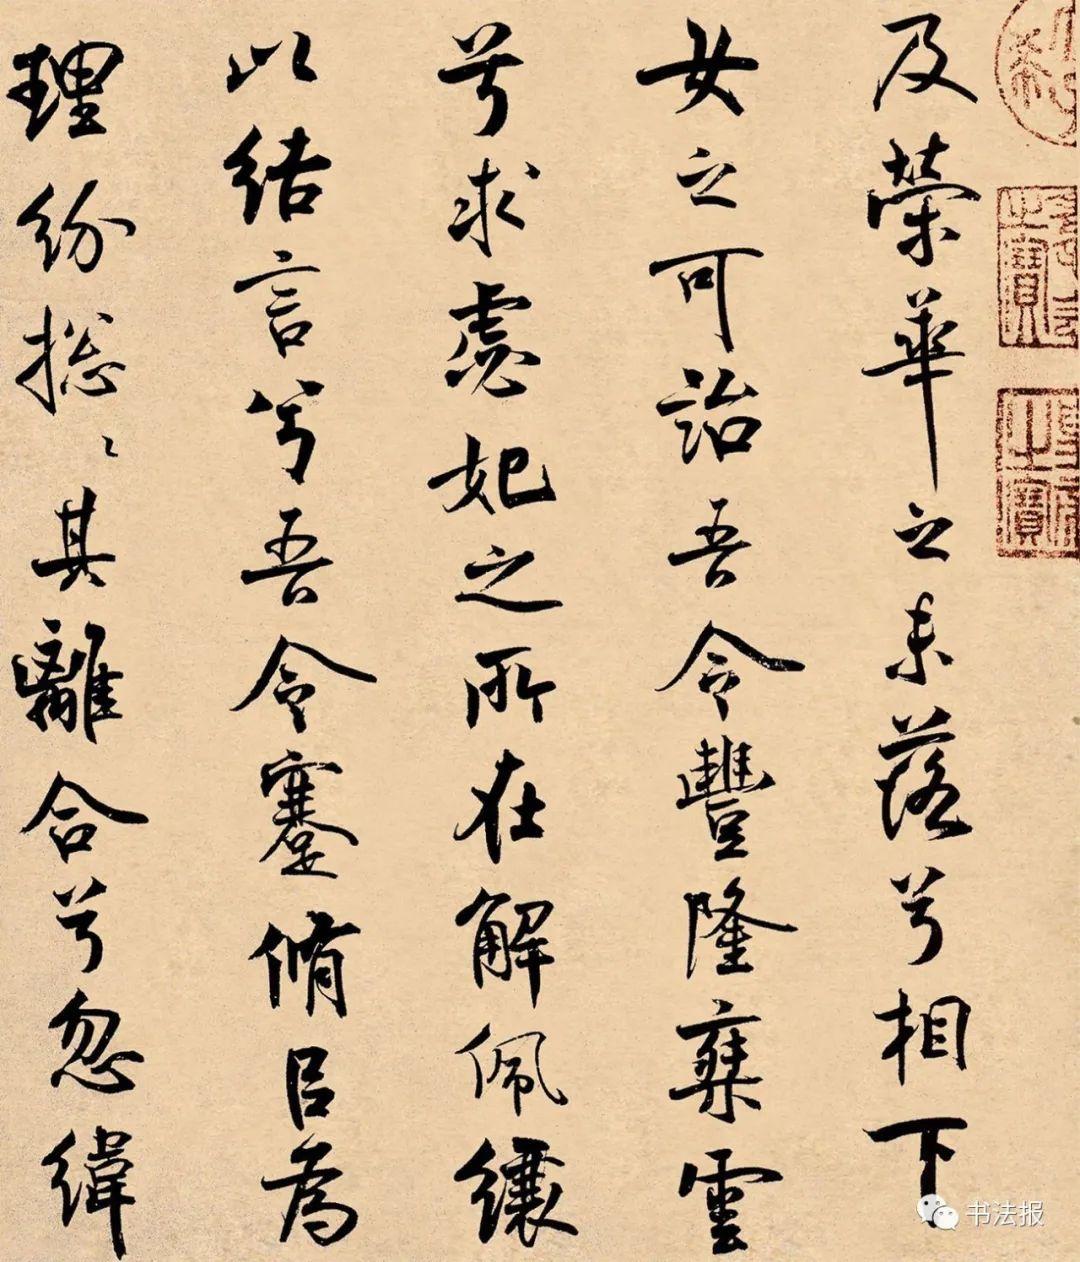 及榮華之未落兮相下
女之可詒吾令豐隆椉雲
兮求虙妃之所在解佩纕
以結言兮吾令蹇脩㠯為
理紛揔〻其離合兮忽緯
书法报